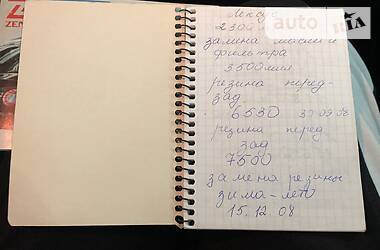 Лексус
2300
замина масла и
фильтра
3500 миля
резина перед-
зад
6530 30.09.08
резина перед
зад
7500
замена резины
зима-лето
15.12.08
auto
RIA
ZEN